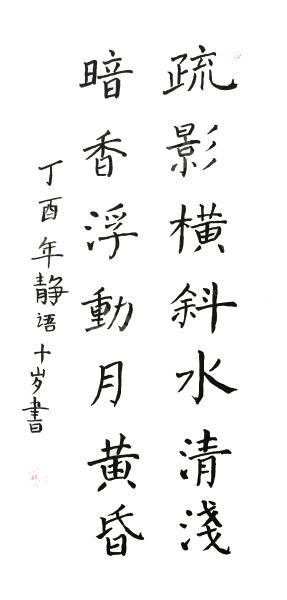 疏影橫斜水清淺
暗香浮動月黄昏
丁酉年静語十岁書